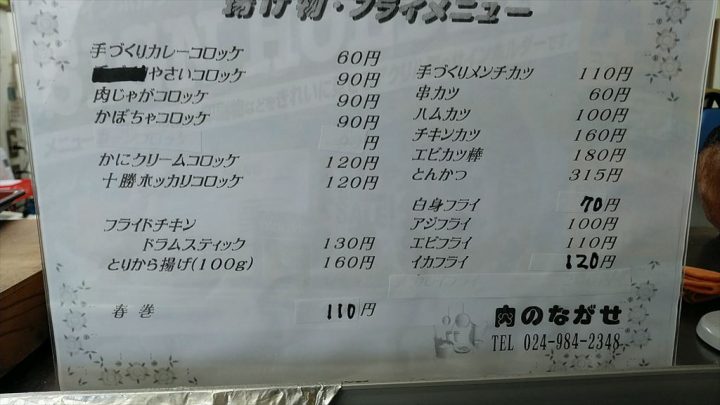 揚げ物・フライメニュー
手づくりカレーコロッケ 60円
やさいコロッケ 90円
肉じゃがコロッケ 90円
かぼちゃコロッケ 90円
円
かにクリームコロッケ 120円
十勝ホッカリコロッケ 120円
フライドチキン
ドラムスティック 130円
とりから揚げ(100g) 160円
春巻 110円
手づくりメンチカツ 110円
串カツ 60円
ハムカツ 100円
チキンカツ 160円
エビカツ棒 180円
とんかつ 315円
白身フライ 70円
アジフライ 100円
エビフライ 110円
イカフライ 120円
肉のながせ
TEL 024-984-2348